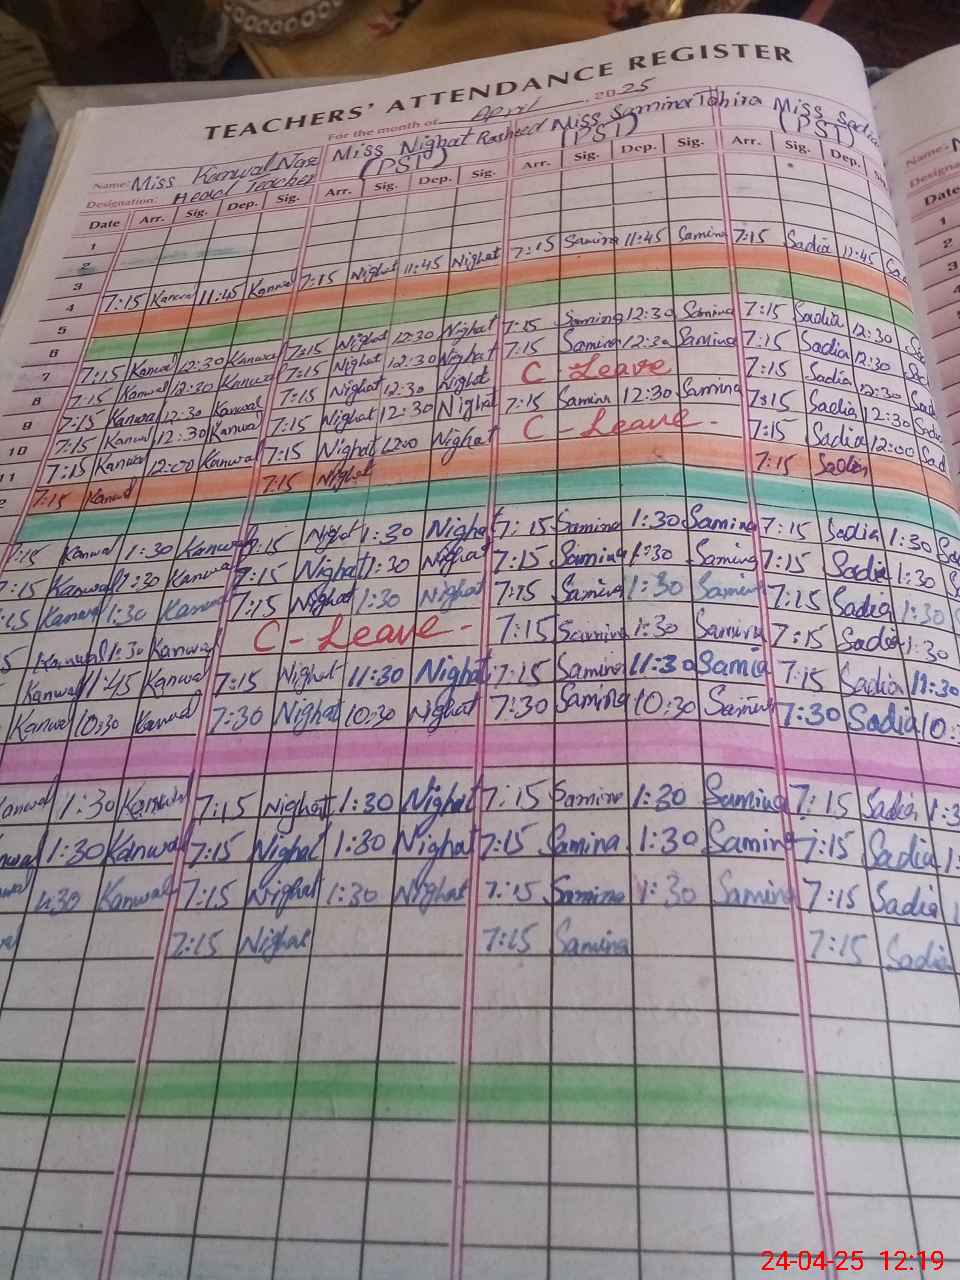 TEACHERS' ATTENDANCE REGISTER
For the month of April 2025
Name: Miss Kanwal Naz Miss Nighat Rasheed Miss Samina Tahira Miss Sadia
Designation: Head Teacher (PST) (PST) (PST)
Name:
Date Arr. Sig. Dep. Sig. Arr. Sig. Dep. Sig. Arr. Sig. Dep. Sig. Arr. Sig. Dep.
Date
1
2
3
4 7:15 Kanwal 11:45 Kanwal 7:15 Nighat 11:45 Nighat 7:15 Samina 11:45 Samina 7:15 Sadia 11:45
5
6
7 7:15 Kanwal 12:30 Kanwal 7:15 Nighat 12:30 Nighat 7:15 Samina 12:30 Samina 7:15 Sadia 12:30
8 7:15 Kanwal 12:30 Kanwal 7:15 Nighat 12:30 Nighat 7:15 Samina 12:30 Samina 7:15 Sadia 12:30
9 7:15 Kanwal 12:30 Kanwal 7:15 Nighat 12:30 Nighat C-Leave 7:15 Sadia 12:30
10 7:15 Kanwal 12:30 Kanwal 7:15 Nighat 12:30 Nighat 7:15 Samina 12:30 Samina 7:15 Sadia 12:30
11 7:15 Kanwal 12:00 Kanwal 7:15 Nighat 12:00 Nighat C-Leave- 7:15 Sadia 12:00 Sad
7:15 Kanwal 7:15 Nighat 7:15 Sadia
7:15 Kanwal 1:30 Kanwal 7:15 Nighat 1:30 Nighat 7:15 Samina 1:30 Samina 7:15 Sadia 1:30
7:15 Kanwal 1:30 Kanwal 7:15 Nighat 1:30 Nighat 7:15 Samina 1:30 Samina 7:15 Sadia 1:30
:15 Kanwal 1:30 Kanwal 7:15 Nighat 1:30 Nighat 7:15 Samina 1:30 Samina 7:15 Sadia 1:30
5 Kanwal 1:30 Kanwal C-Leave- 7:15 Samina 1:30 Samina 7:15 Sadia 1:30
Kanwal 11:45 Kanwal 7:15 Nighat 11:30 Nighat 7:15 Samina 11:30 Samia 7:15 Sadia 11:30
Kanwal 10:30 Kanwal 7:30 Nighat 10:30 Nighat 7:30 Samina 10:30 Samina 7:30 Sadia 10:
anwal 1:30 Kanwal 7:15 Nighat 1:30 Nighat 7:15 Samina 1:30 Samina 7:15 Sadia 1:3
nwal 1:30 Kanwal 7:15 Nighat 1:30 Nighat 7:15 Samina 1:30 Samina 7:15 Sadia 1:
1:30 Kanwal 7:15 Nighat 1:30 Nighat 7:15 Samina 1:30 Samina 7:15 Sadia
7:15 Nighat 7:15 Samina 7:15 Sadia
24-04-25 12:19